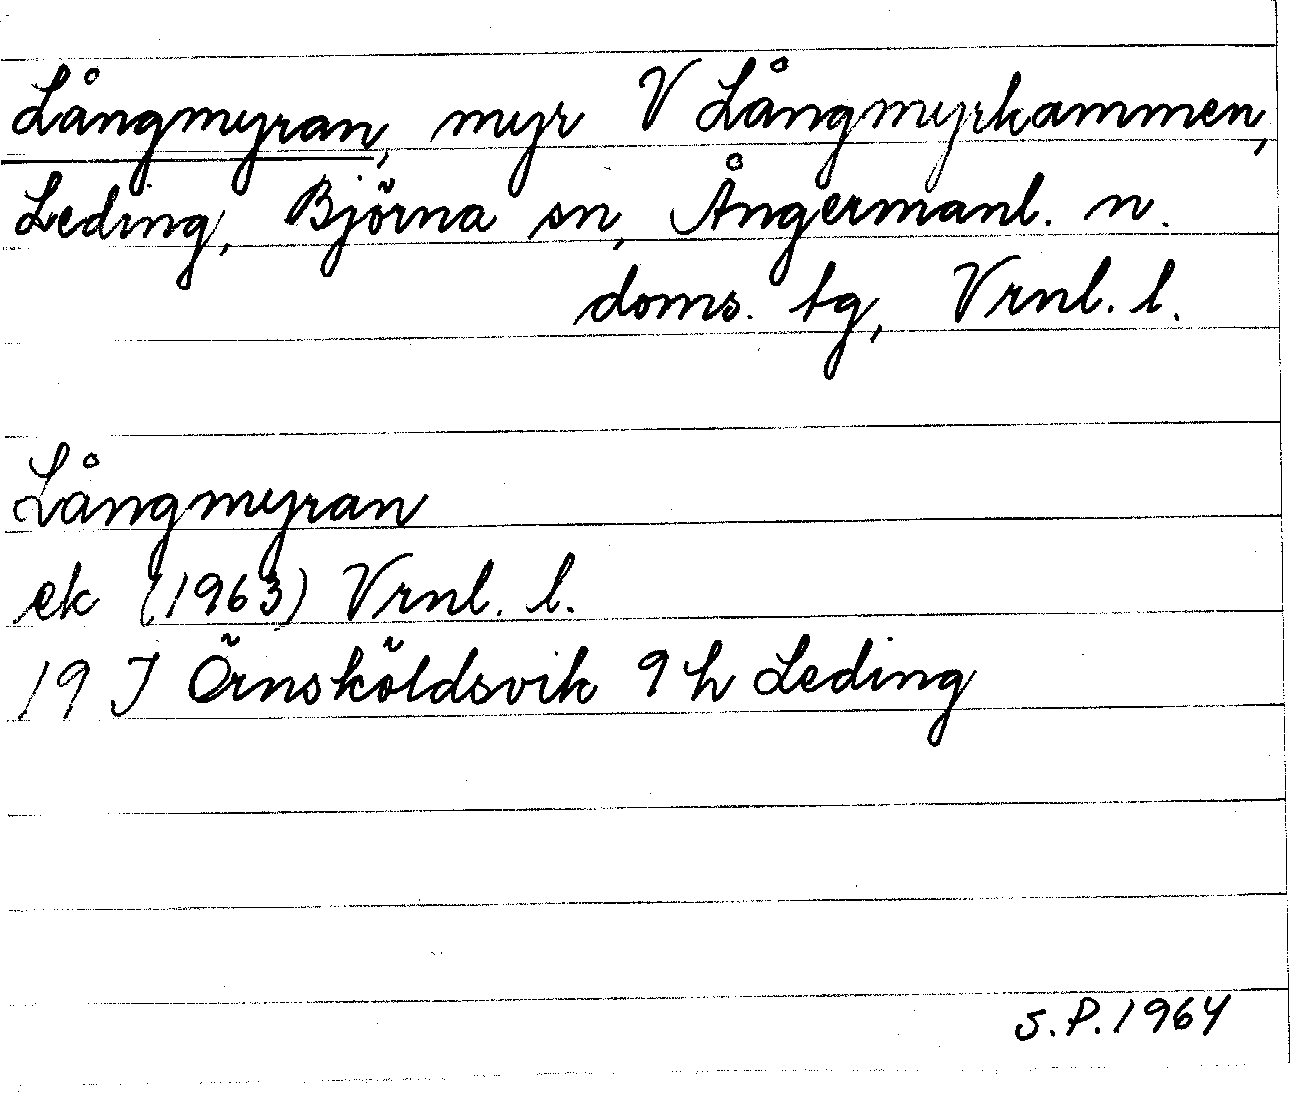 Långmyran, myr V Långmyrkammen,
Leding, Björna sn, Ångermanl. n.
doms. tg, Vrnl. l.
Långmyran
ek (1963) Vrnl. l.
19 J Örnsköldsvik 9 h Leding
S.P. 1964